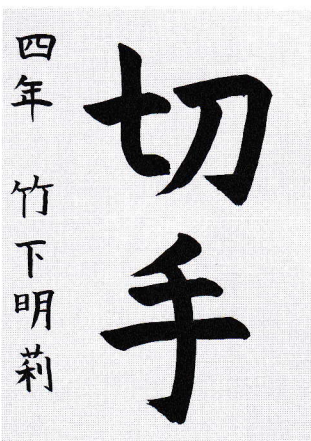 切手
四年 竹下明莉